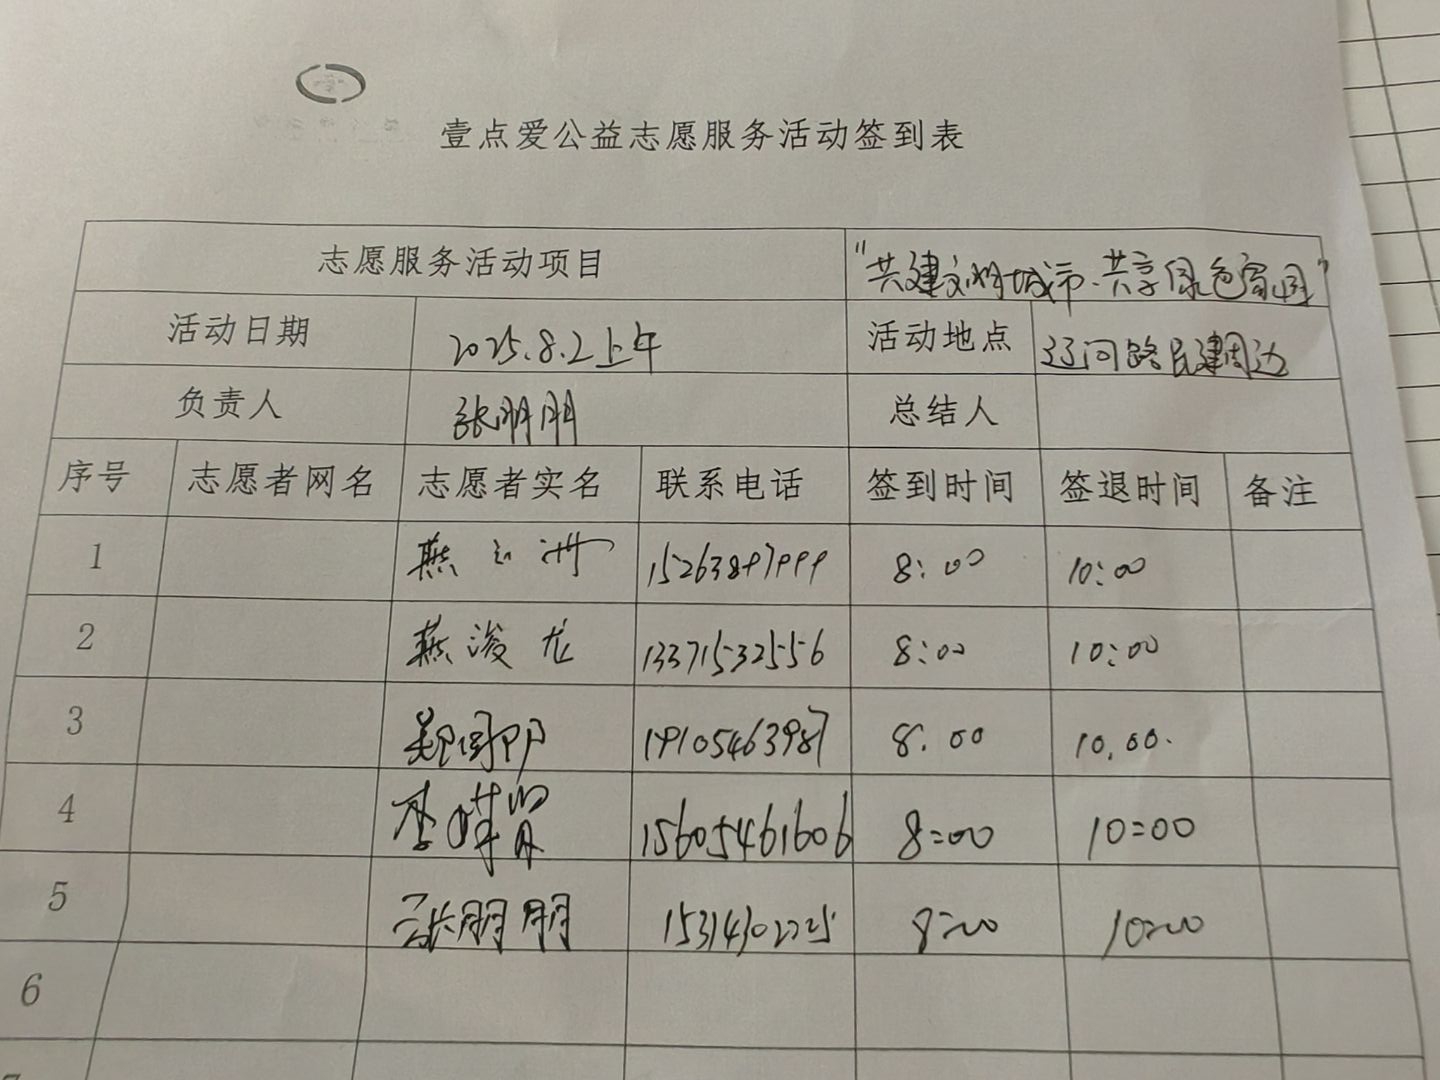 壹点爱公益志愿服务活动签到表
志愿服务活动项目 "共建文明城市·共享绿色家园"
活动日期 2025.8.2上午 活动地点 辽河路民建周边
负责人 张朋朋 总结人
序号 志愿者网名 志愿者实名 联系电话 签到时间 签退时间 备注
1 燕 8:00 10:00
2 燕浚龙 13371532556 8:00 10:00
3 19105463987 8.00 10.00.
4 李 15605461606 8:00 10:00
5 张朋朋 15314302225 8:00 10:00
6
7